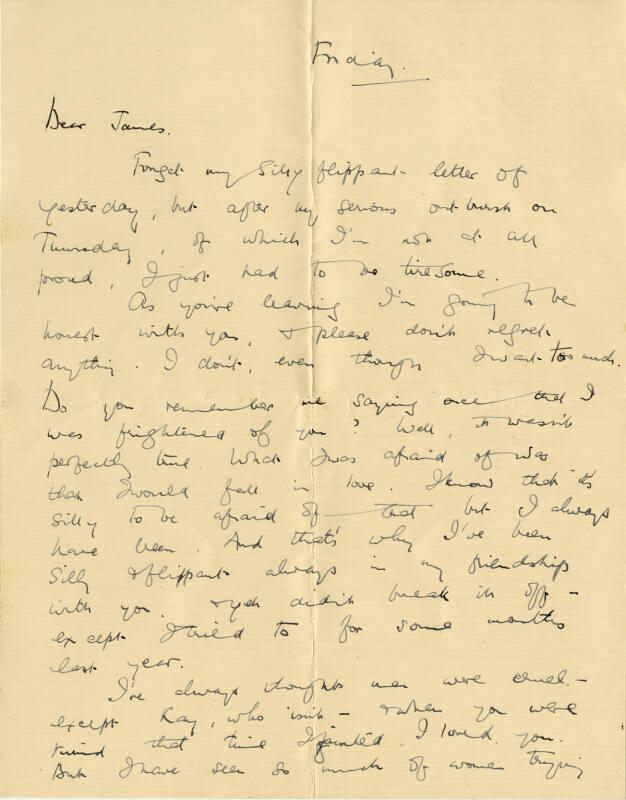 Friday.
Dear James.
Forget my silly flippant letter of
yesterday, but after my serious outburst on
Thursday, of which I'm not at all
proud, I just had to be tiresome.
As you're leaving I'm going to be
honest with you, & please don't regret
anything. I don't, even though I want too much.
Do you remember me saying once that I
was frightened of you? Well, it wasn't
perfectly true. What I was afraid of was
that I would fall in love. I know that it's
silly to be afraid of that but I always
have been. And that's why I've been
silly & flippant always in my friendship
with you. & yet didn't break it off -
except I tried to for some months
last year.
I've always thought men were cruel -
except Kay, who isn't - & when you were
kind that time I fainted, I loved you.
But I have seen so much of women trying